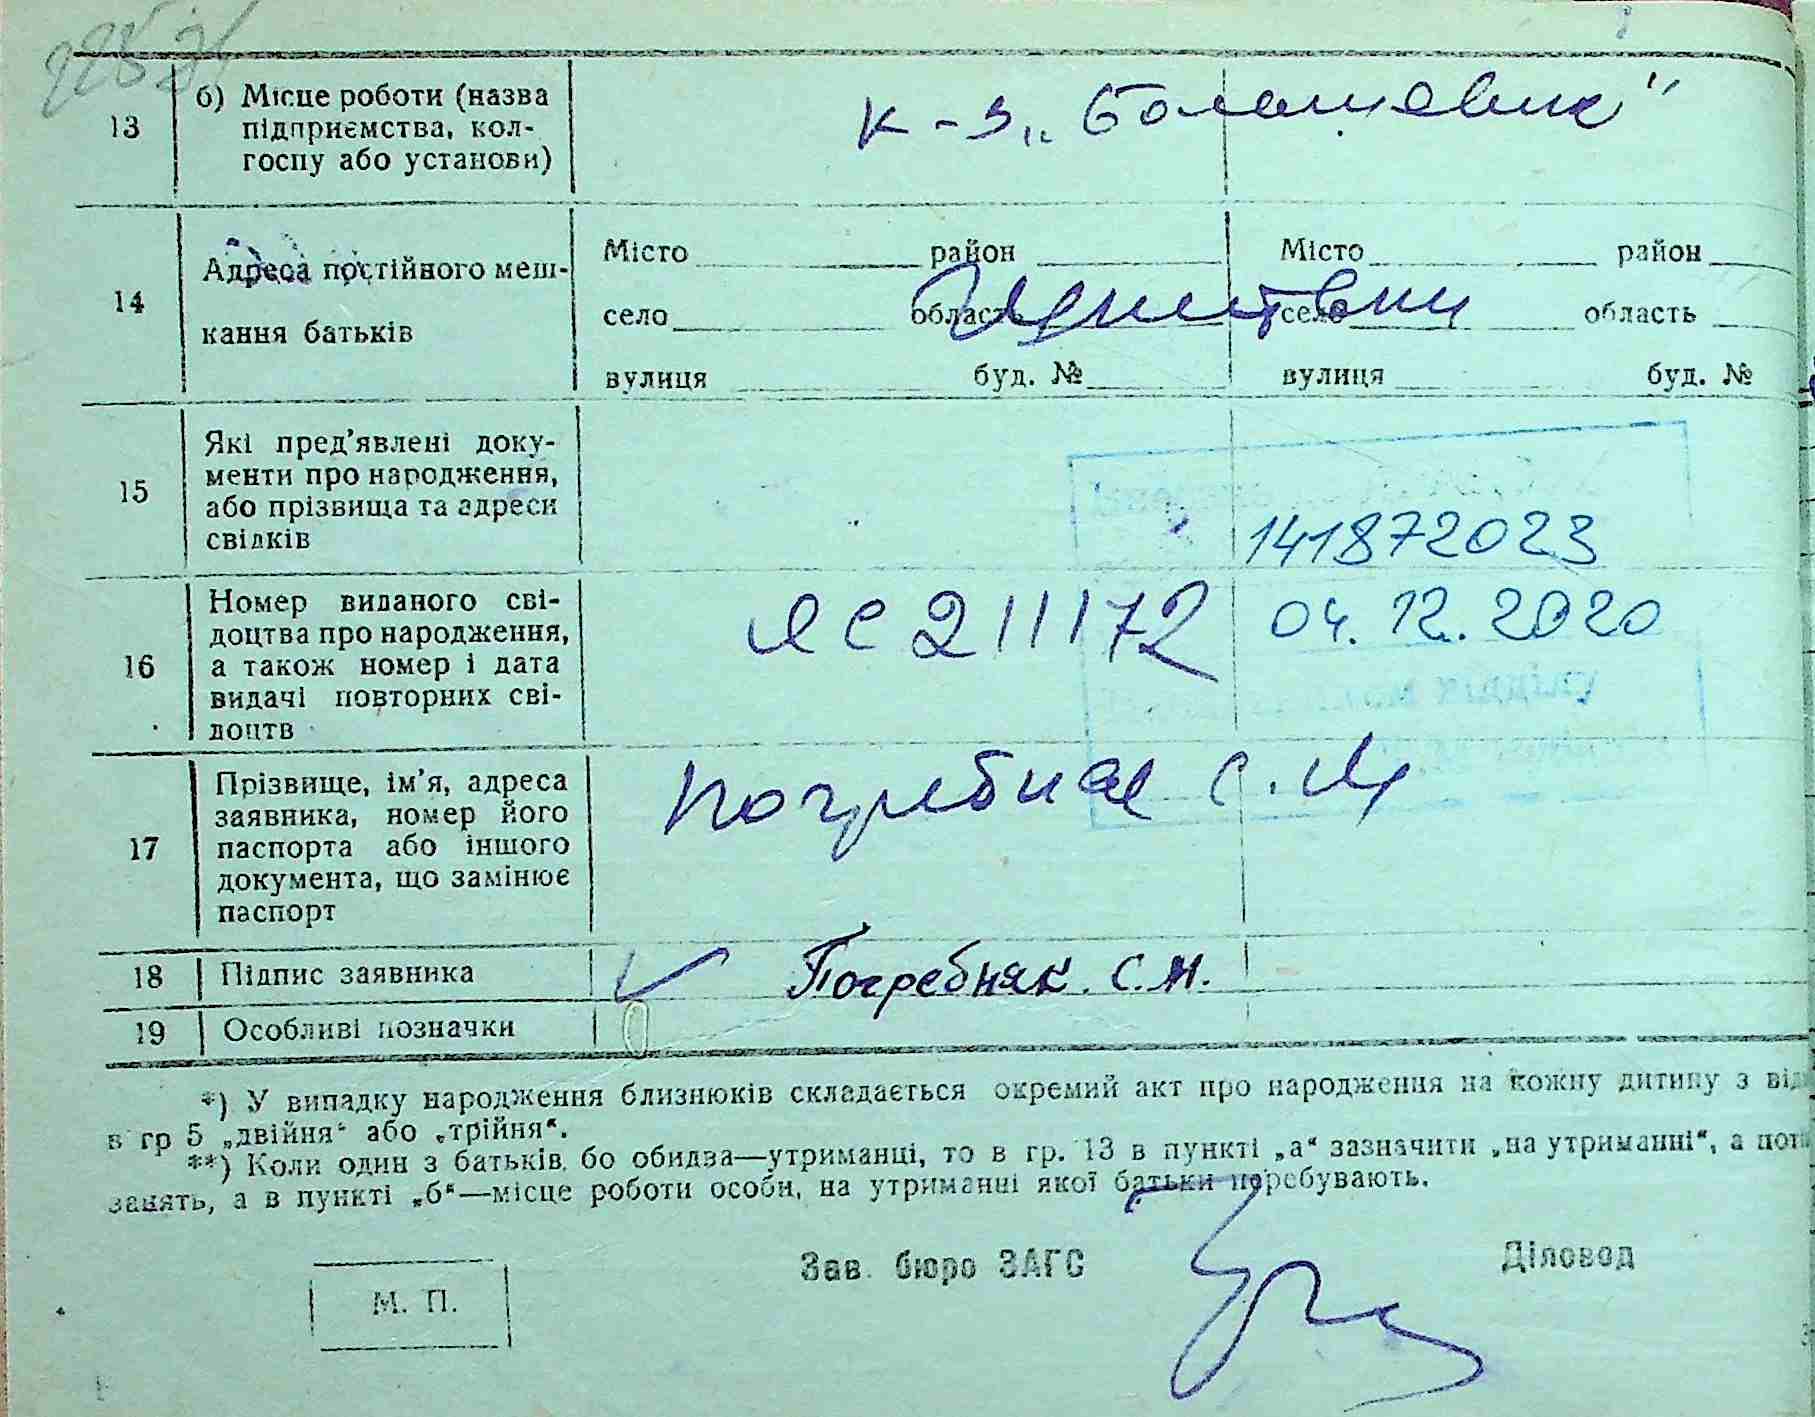 13
б) Місце роботи (назва
підприємства, кол-
госпу або установи)
к-з „Большевик"
14
Адреса постійного меш-
кання батьків
Місто район
село область
вулиця буд. №
Місто район
село область
вулиця буд. №
15
Які пред’явлені доку-
менти про народження,
або прізвища та адреси
свідків
141872023
16
Номер виданого сві-
доцтва про народження,
а також номер і дата
видачі повторних сві-
доцтв
ЯС 211172
04.12.2020
17
Прізвище, ім’я, адреса
заявника, номер його
паспорта або іншого
документа, що замінює
паспорт
Погребняк С.
18
Підпис заявника
Погребняк. С.М.
19
Особливі позначки
*) У випадку народження близнюків складається окремий акт про народження на кожну дитину з від
в гр 5 „двійня“ або „трійня“.
**) Коли один з батьків, бо обидва—утриманці, то в гр. 13 в пункті „а“ зазначити „на утриманні“, а пот
занять, а в пункті „б“—місце роботи особи, на утриманні якої батьки перебувають.
Зав. бюро ЗАГС
Діловод
М. П.